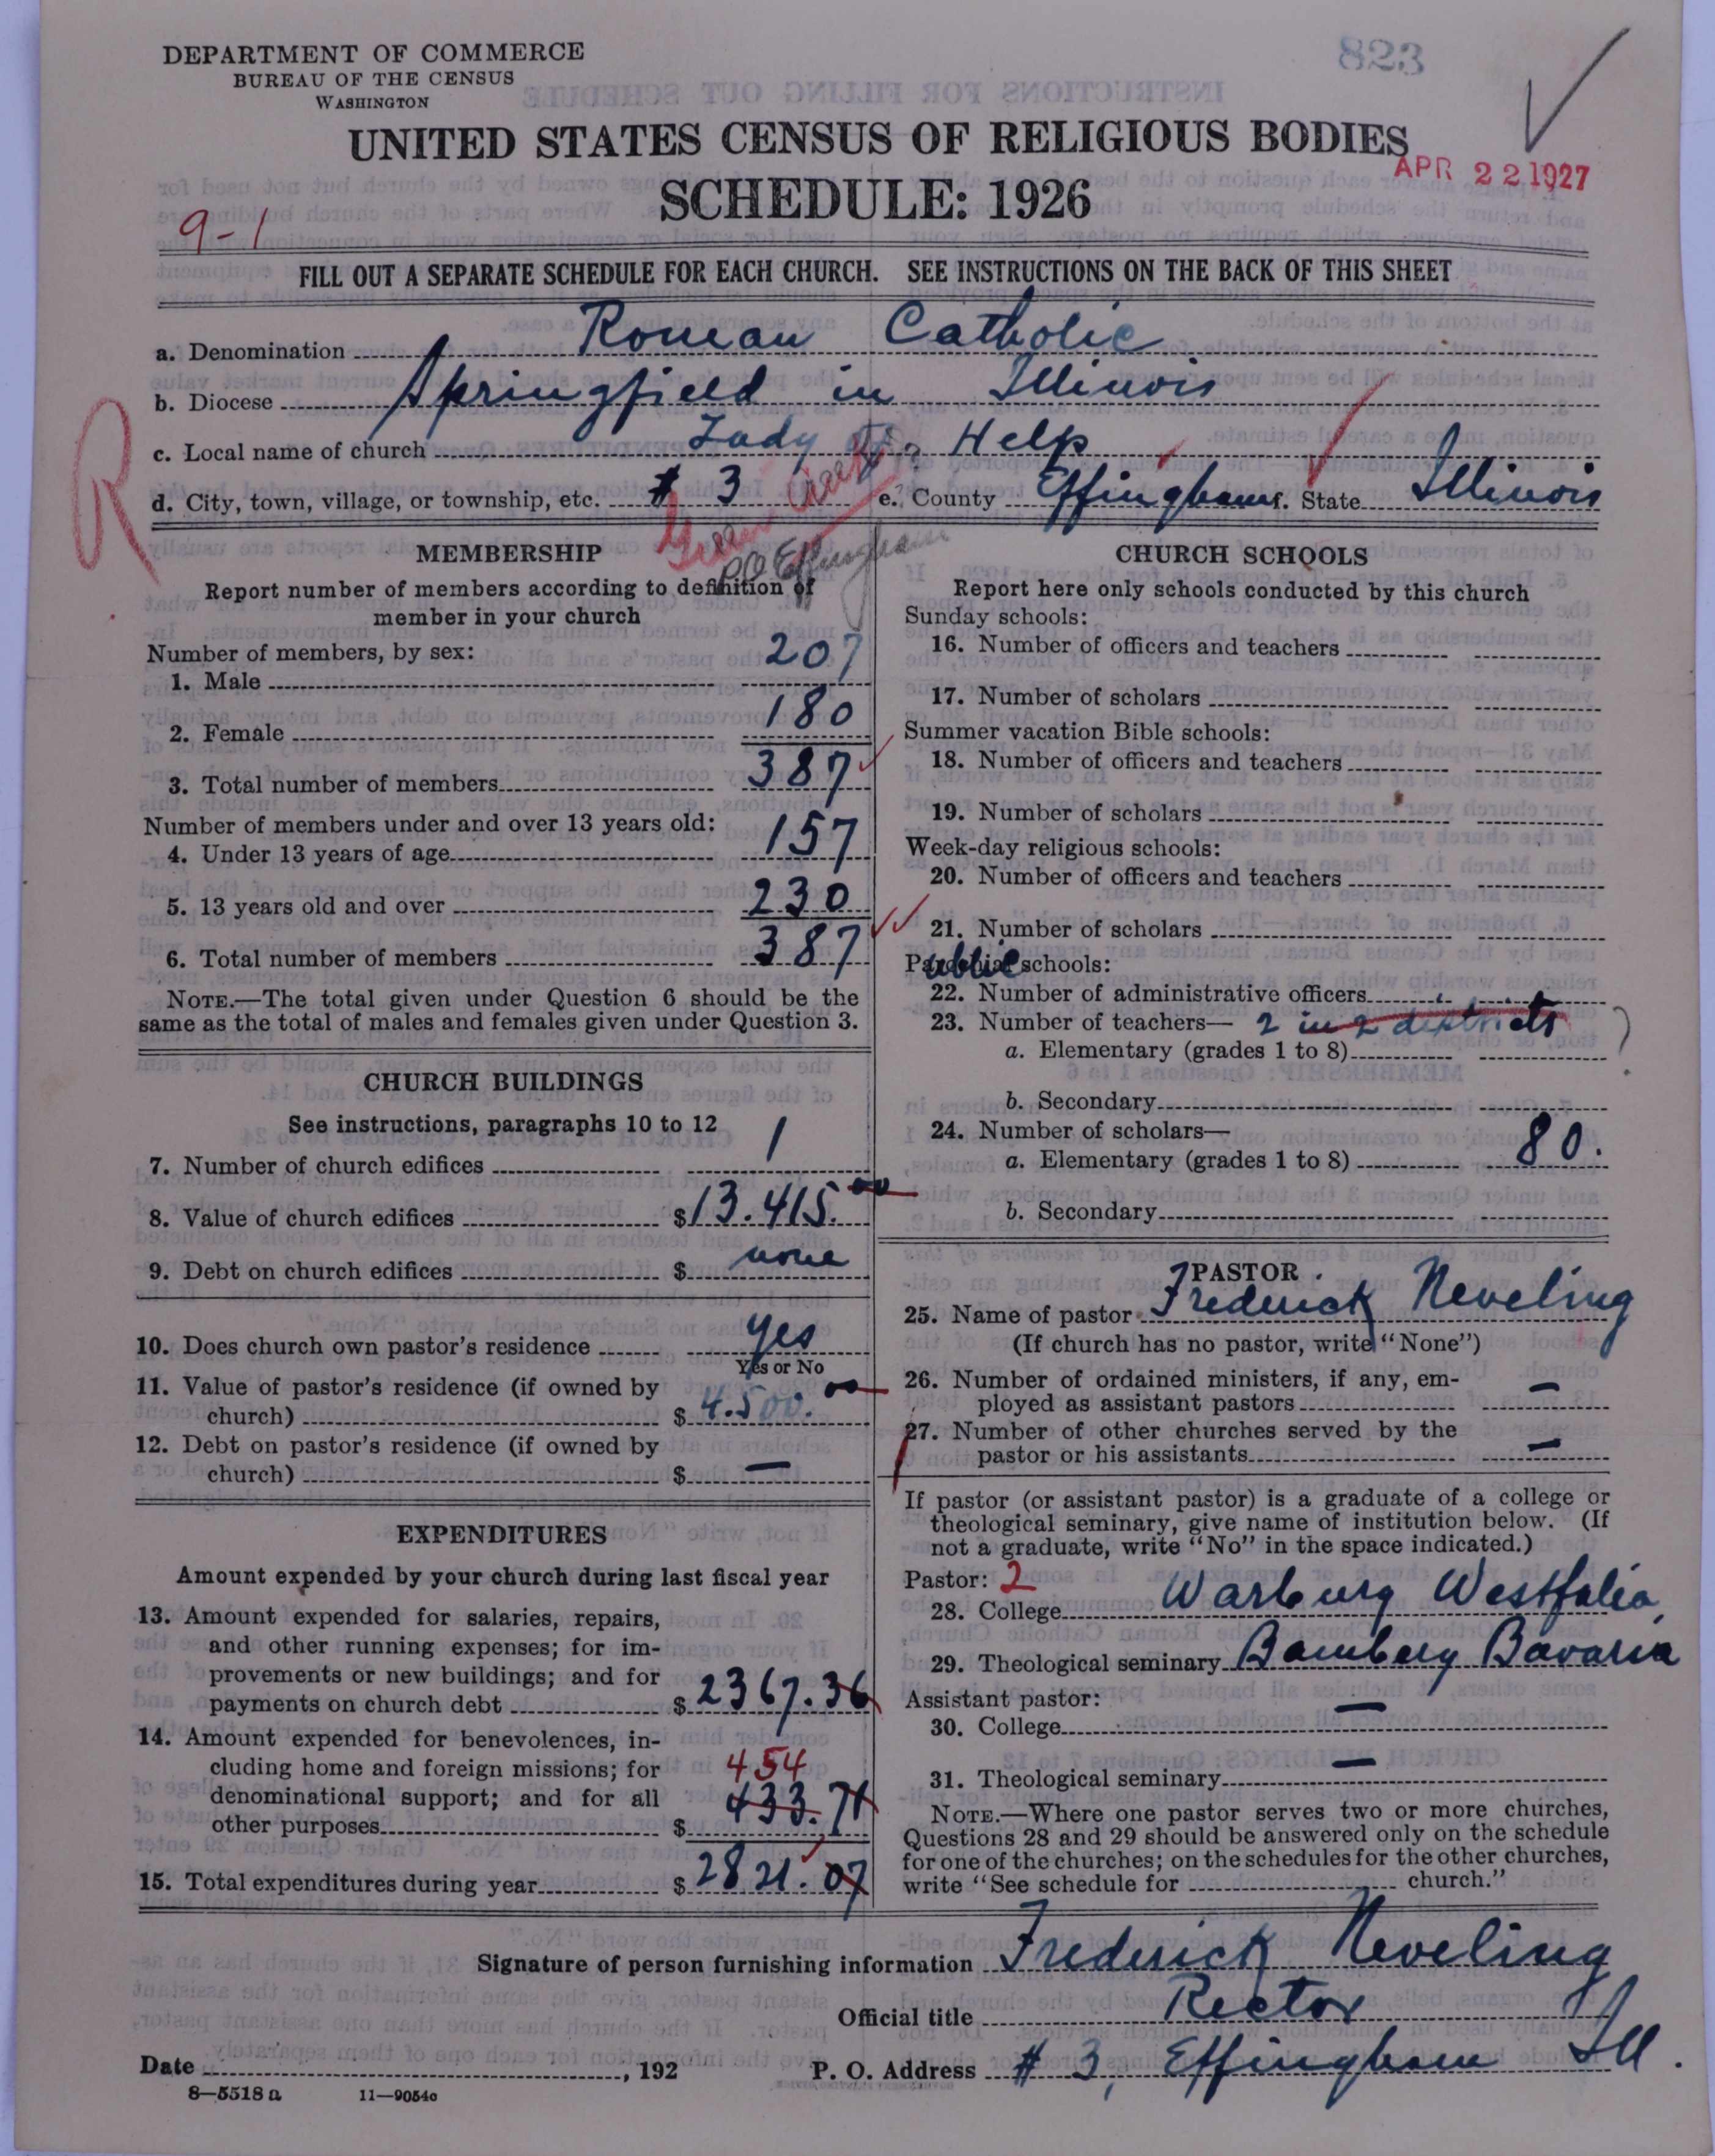 DEPARTMENT OF COMMERCE
BUREAU OF THE CENSUS
WASHINGTON
823
UNITED STATES CENSUS OF RELIGIOUS BODIES
APR 22 1927
SCHEDULE: 1926
9-1
FILL OUT A SEPARATE SCHEDULE FOR EACH CHURCH. SEE INSTRUCTIONS ON THE BACK OF THIS SHEET
a. Denomination Roman Catholic
b. Diocese Springfield in Illinois
c. Local name of church Lady of Help
d. City, town, village, or township, etc. # 3 e. County Effingham f. State Illinois
R
Green Creek
PO Effingham
MEMBERSHIP
Report number of members according to definition of
member in your church
Number of members, by sex:
1. Male 207
2. Female 180
3. Total number of members 387
Number of members under and over 13 years old:
4. Under 13 years of age 157
5. 13 years old and over 230
6. Total number of members 387
NOTE.—The total given under Question 6 should be the
same as the total of males and females given under Question 3.
CHURCH BUILDINGS
See instructions, paragraphs 10 to 12
7. Number of church edifices 1
8. Value of church edifices $13.415.00
9. Debt on church edifices $ none
10. Does church own pastor's residence yes
Yes or No
11. Value of pastor's residence (if owned by
church) $ 4.500.00
12. Debt on pastor's residence (if owned by
church) $ —
EXPENDITURES
Amount expended by your church during last fiscal year
13. Amount expended for salaries, repairs,
and other running expenses; for im-
provements or new buildings; and for
payments on church debt $ 2367.36
14. Amount expended for benevolences, in-
cluding home and foreign missions; for 454
denominational support; and for all 433.71
other purposes $
15. Total expenditures during year $ 2821.07
CHURCH SCHOOLS
Report here only schools conducted by this church
Sunday schools:
16. Number of officers and teachers
17. Number of scholars
Summer vacation Bible schools:
18. Number of officers and teachers
19. Number of scholars
Week-day religious schools:
20. Number of officers and teachers
21. Number of scholars
Public schools:
22. Number of administrative officers
23. Number of teachers— 2 in 2 districts
a. Elementary (grades 1 to 8)
b. Secondary
24. Number of scholars—
a. Elementary (grades 1 to 8) 80.
b. Secondary
PASTOR
25. Name of pastor Frederick Neveling
(If church has no pastor, write "None")
26. Number of ordained ministers, if any, em-
ployed as assistant pastors —
27. Number of other churches served by the
pastor or his assistants —
If pastor (or assistant pastor) is a graduate of a college or
theological seminary, give name of institution below. (If
not a graduate, write "No" in the space indicated.)
Pastor: 2
28. College Warburg Westfalia,
29. Theological seminary Bamberg Bavaria
Assistant pastor:
30. College —
31. Theological seminary —
NOTE.—Where one pastor serves two or more churches,
Questions 28 and 29 should be answered only on the schedule
for one of the churches; on the schedules for the other churches,
write "See schedule for church."
Signature of person furnishing information Frederick Neveling
Official title Rector
Date , 192 P. O. Address # 3, Effingham Ill.
8—5518 a 11—9054c